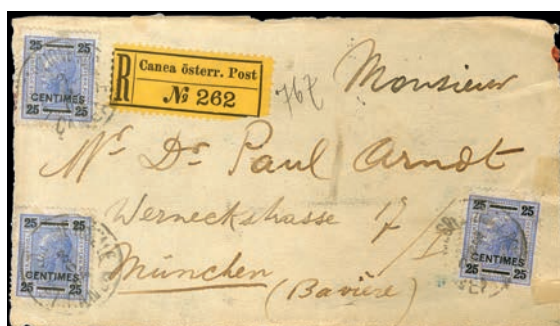 25 25
CENTIMES
25 25
R Canea österr. Post
№ 262
767
Monsieur
Mr Dr Paul Arndt
Werneckstrasse 7/I
München
(Bavière)
25 25
CENTIMES
25 25
25 25
CENTIMES
25 25